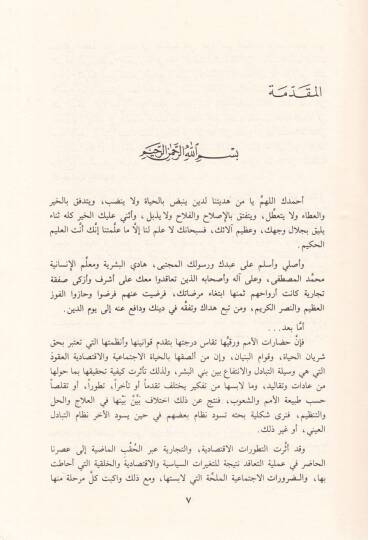 المقدّمة
بسم الله الرحمن الرحيم
أحمدك اللهمَّ يا من هديتنا لدين ينبض بالحياة ولا ينضب، ويتدفق بالخير
والعطاء ولا يتعطّل، ويتفتق بالإصلاح والفلاح ولا يذبل، وأثني عليك الخير كله ثناء
يليق بجلال وجهك، وعظيم آلائك، فسبحانك لا علم لنا إلّا ما علَّمتنا إنك أنت العليم
الحكيم.
وأصلي وأسلم على عبدك ورسولك المجتبى، هادي البشرية ومعلّم الإنسانية
محمَّد المصطفى، وعلى آله وأصحابه الذين تعاقدوا معك على أشرف وأزكى صفقة
تجارية كانت أرواحهم ثمنها ابتغاء مرضاتك، فرضيت عنهم فرضوا وحازوا الفوز
العظيم والنصر الكريم، ومن تبع هداك وتفقّه في دينك ودافع عنه إلى يوم الدين.
أمَّا بعد...
فإنَّ حضارات الأمم ورقيُّها تقاس درجتها بتقدم قوانينها وأنظمتها التي تعتبر بحق
شريان الحياة، وقوام البنيان، وإن من ألصقها بالحياة الاجتماعية والاقتصادية العقودَ
التي هي وسيلة التبادل والانتفاع بين بني البشر، ولذلك تأثرت كيفية تحقيقها بما حولها
من عادات وتقاليد، وما لابسها من تفكير يختلف تقدماً أو تأخراً، تطوراً، أو تقلصاً
حسب طبيعة الأمم والشعوب، فنتج عن ذلك اختلاف بَيِّنٌ بيْنها في العلاج والحل
والتنظيم، فنرى شكلية بحته تسود نظام بعضهم في حين يسود الآخر نظام التبادل
العيني، أو غير ذلك.
وقد أثَّرت التطورات الاقتصادية، والتجارية عبر الحُقْب الماضية إلى عصرنا
الحاضر في عملية التعاقد نتيجة للتغيرات السياسية والاقتصادية والخلقية التي أحاطت
بها، والضرورات الاجتماعية الملحَّة التي لابستها، ومع ذلك واكبت كلَّ مرحلة منها
٧